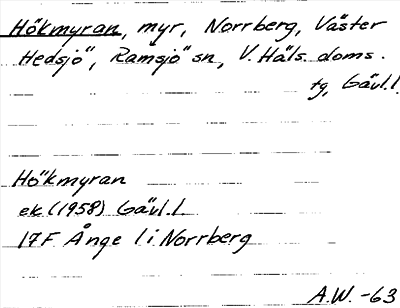 Hökmyran, myr, Norrberg, Väster
Hedsjö, Ramsjö sn, V. Häls. doms.
tg, Gävl. l.
Hökmyran
ek. (1958) Gävl. l.
17F Ånge l. i Norrberg
A.W. -63